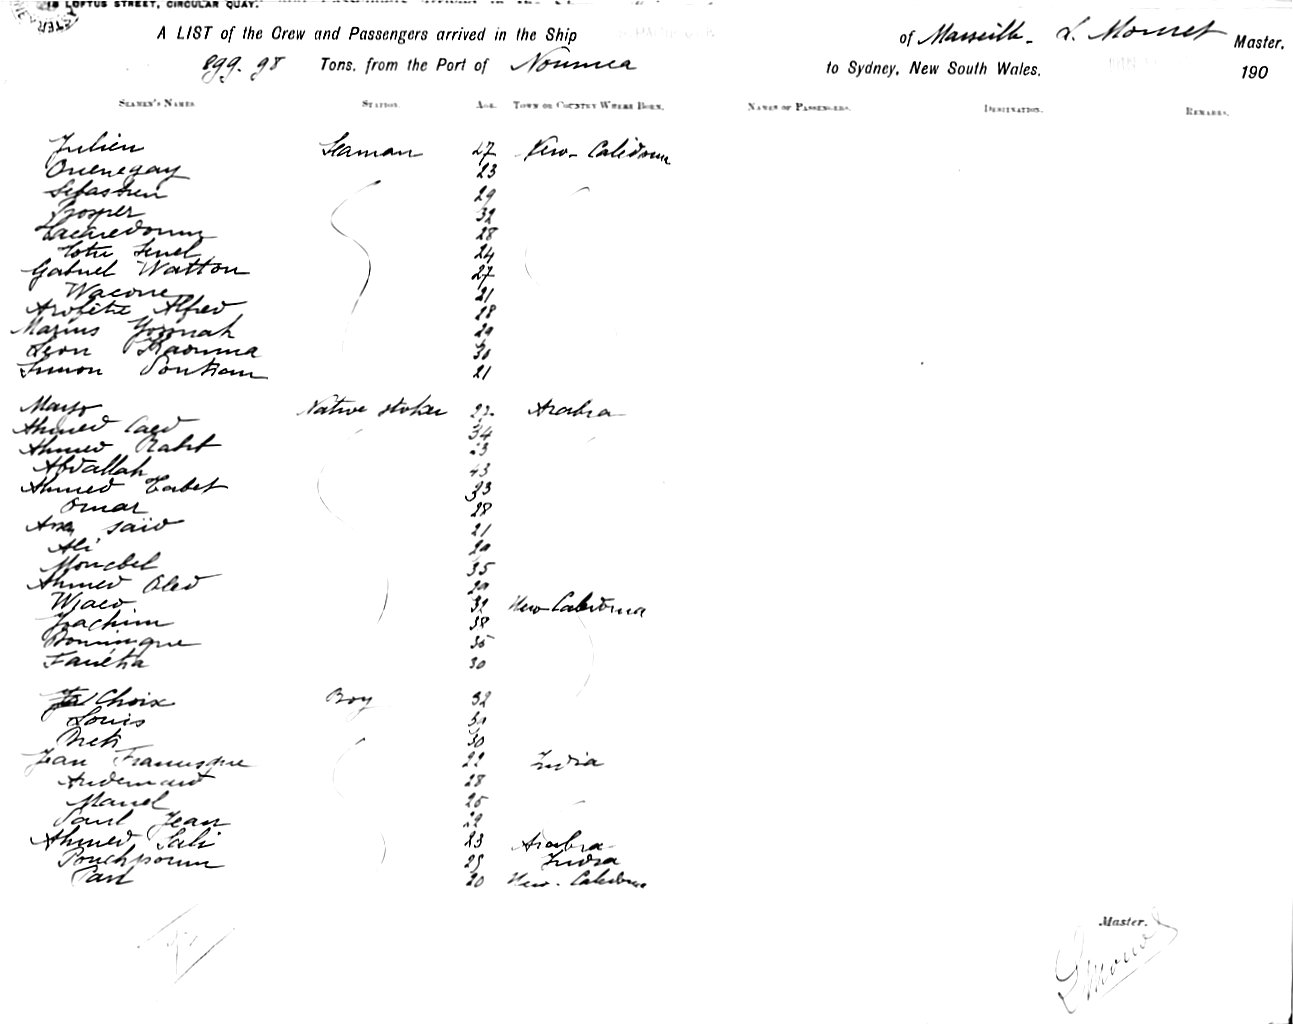 18 LOFTUS STREET, CIRCULAR QUAY.
A LIST of the Crew and Passengers arrived in the Ship
of Marseille. L. Monret Master.
899.98 Tons. from the Port of Noumea
to Sydney, New South Wales,
190
SEAMEN'S NAMES STATION. AGE. TOWN OR COUNTRY WHERE BORN. NAMES OF PASSENGERS. DESTINATION. REMARKS.
Julien Seaman 27 New-Caledonia
Ouenegay 23
Sebastien 29
Prosper 32
28
24
Gabriel Watton 27
Wacone 21
Alfred 28
Marius 29
Léon 30
Simon 21
Native stoker 22 Arabia
Ahmed Caed 34
Ahmed 23
Abdallah 43
Ahmed Tabet 33
Omar 28
Saïd 21
Ali 29
35
Ahmed Oled 29
Wjaed 32 New Caledonia
Joachim 38
Dominique 35
30
Choix Boy 32
Louis 30
30
Jean Francisque 22 India
28
Manel 25
Paul Jean 29
Ahmed Sali 23 Arabia
25 India
Paul 20 New-Caledonia
Master.